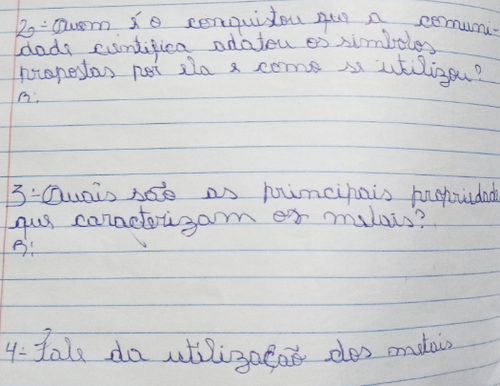 2-Quem é o conquistou que a comuni-
dade científica adatou os símbolos
propostas por ela e como se utilizou?
R:
3-Quais são as principais propriedade
que caracterizam os metais?
R:
4-Fale da utilização dos metais